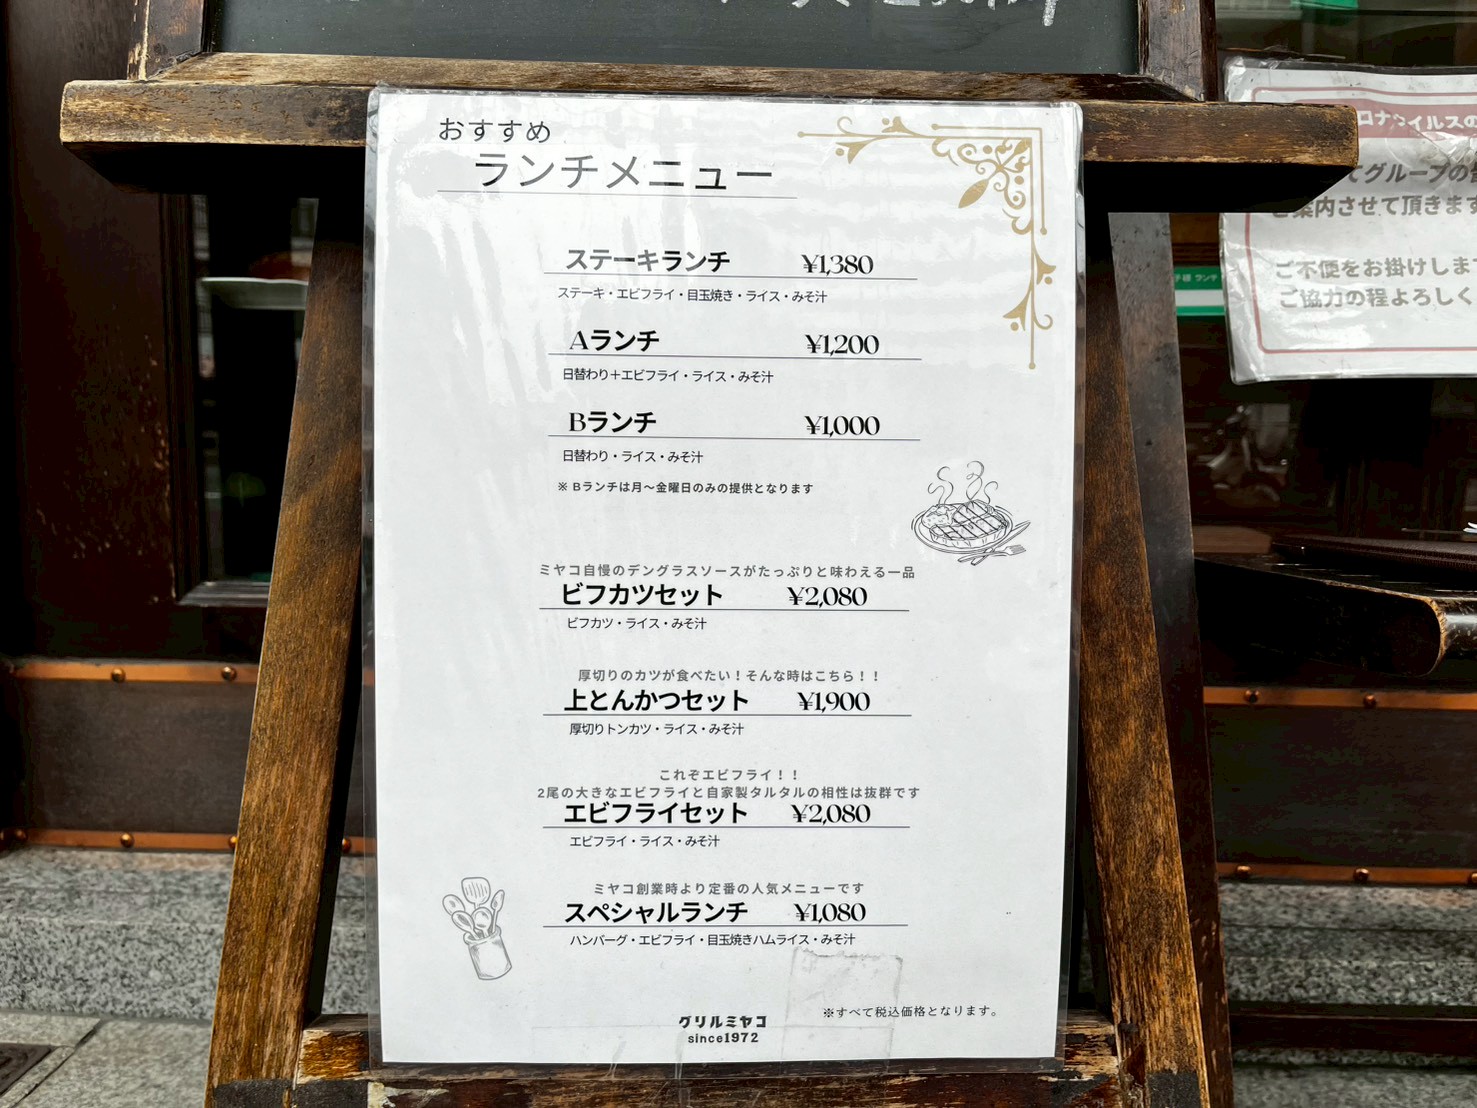 おすすめ
ランチメニュー
ステーキランチ ¥1,380
ステーキ・エビフライ・目玉焼き・ライス・みそ汁
Aランチ ¥1,200
日替わり＋エビフライ・ライス・みそ汁
Bランチ ¥1,000
日替わり・ライス・みそ汁
※ Bランチは月～金曜日のみの提供となります
ミヤコ自慢のデングラスソースがたっぷりと味わえる一品
ビフカツセット ¥2,080
ビフカツ・ライス・みそ汁
厚切りのカツが食べたい！そんな時はこちら！！
上とんかつセット ¥1,900
厚切りトンカツ・ライス・みそ汁
これぞエビフライ！！
2尾の大きなエビフライと自家製タルタルの相性は抜群です
エビフライセット ¥2,080
エビフライ・ライス・みそ汁
ミヤコ創業時より定番の人気メニューです
スペシャルランチ ¥1,080
ハンバーグ・エビフライ・目玉焼きハムライス・みそ汁
※すべて税込価格となります。
グリルミヤコ
since1972
ロナウイルスの
てグループの
ご案内させて頂きます
ご不便をお掛けしま
ご協力の程よろしく